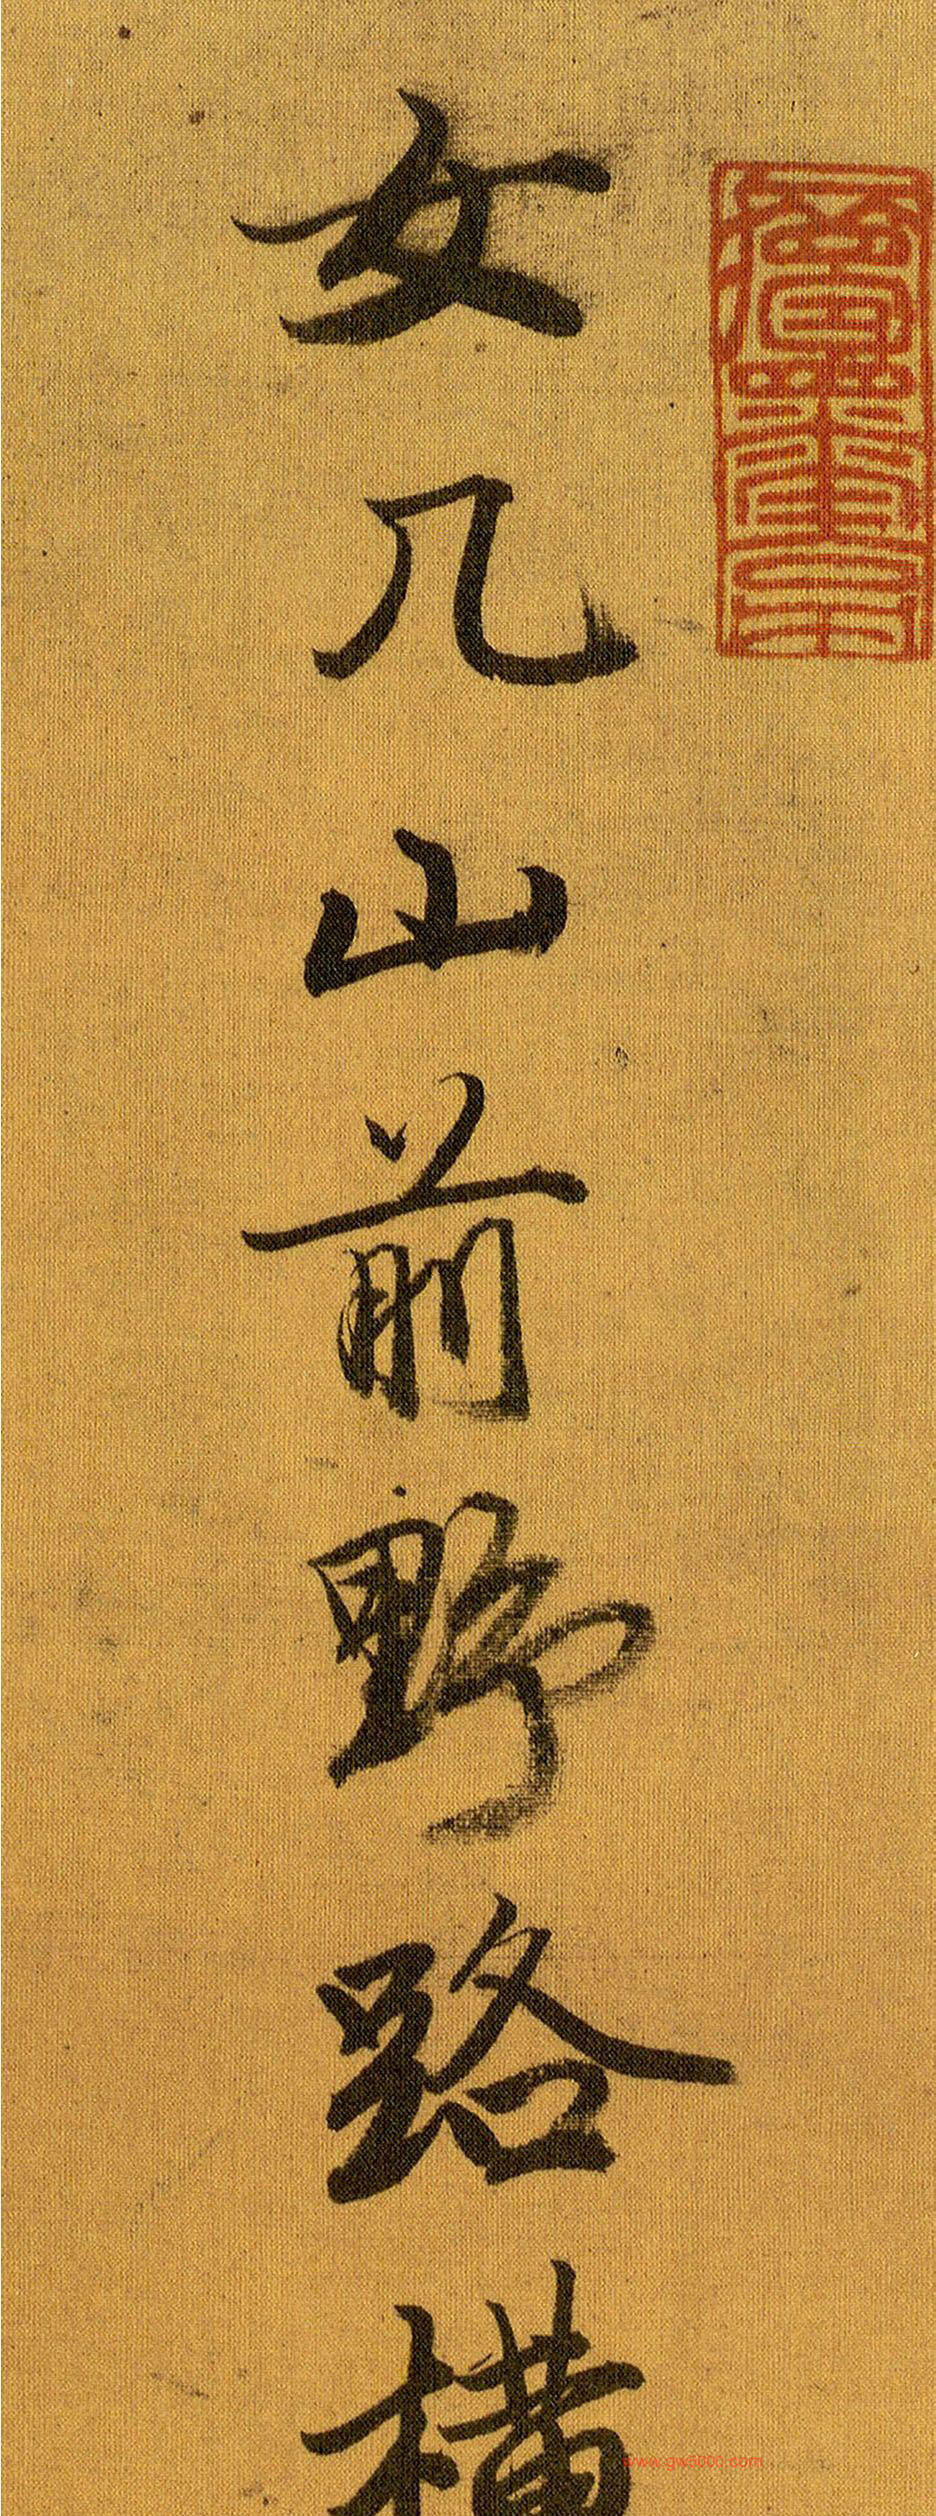 女几山前野路横
www.gw5000.com